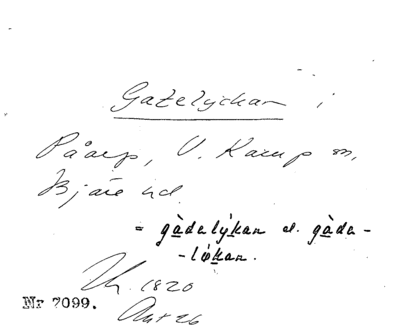 Gatelyckan i
Påarp, V. Karup sn,
Bjäre hd.
= gàdalýkan el. gàda-
-løkan.
1820
Nr 7099.